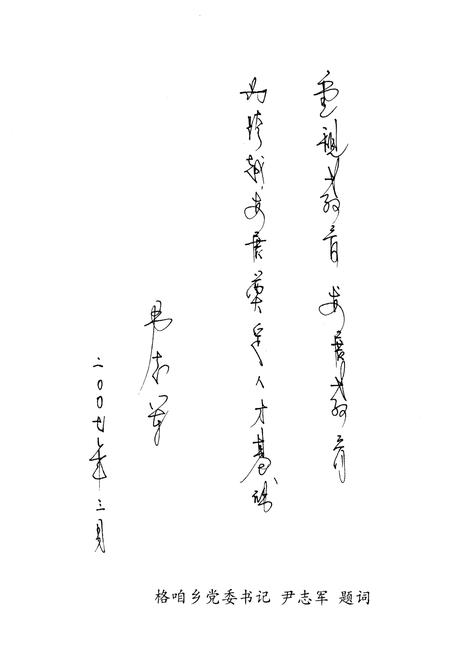 重视教育 发展教育
为跨越发展奠定人才基础
尹志军
二〇〇七年三月
格咱乡党委书记 尹志军 题词